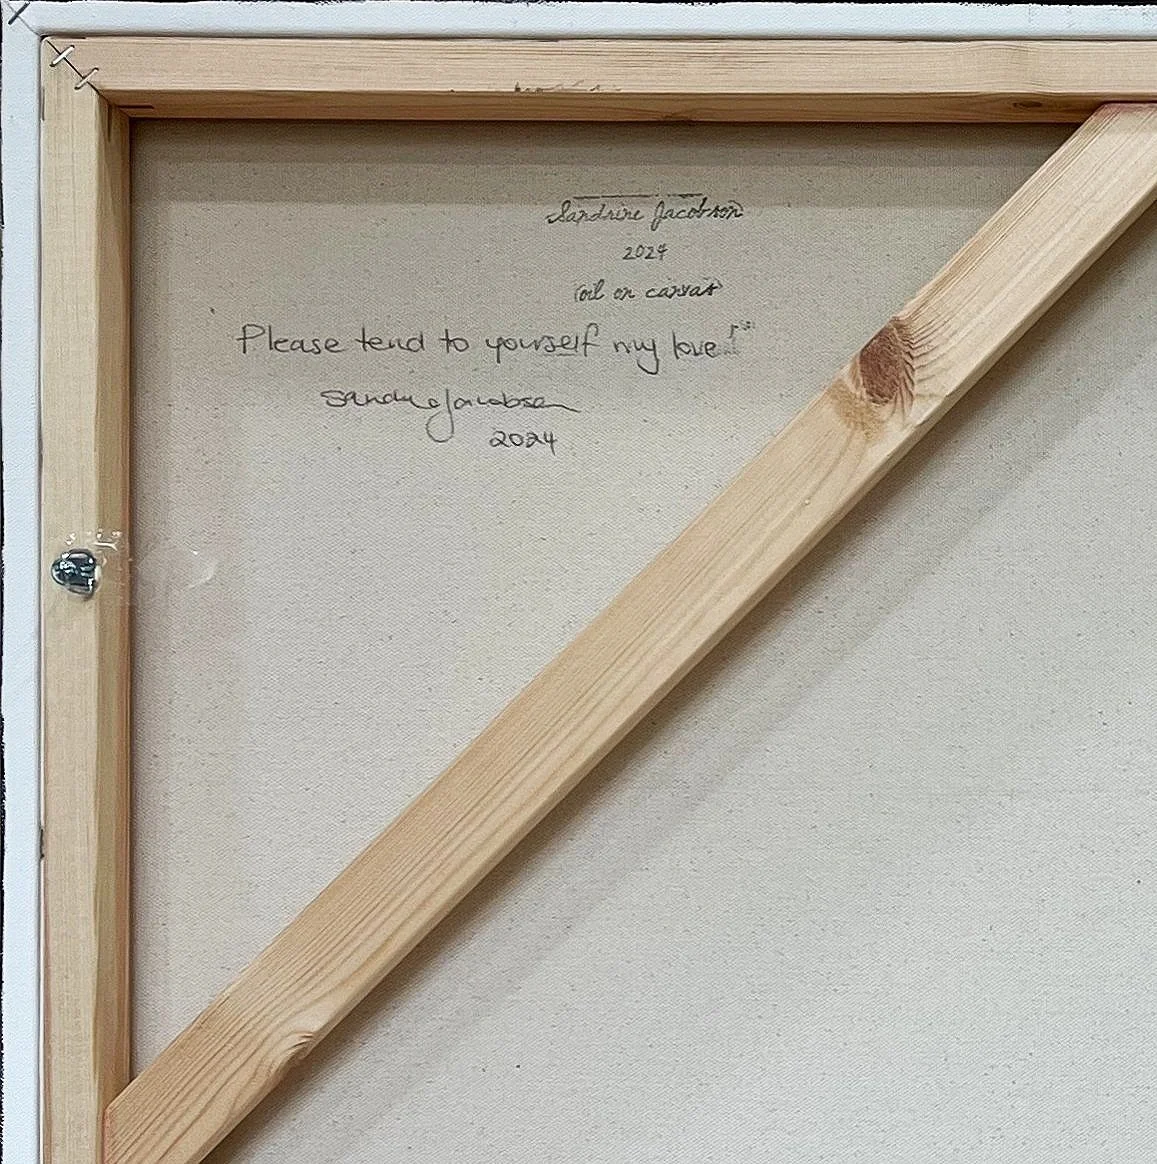 Sandrine Jacobson
2024
(oil on canvas)
Please tend to yourself my love
Sandrine Jacobson
2024